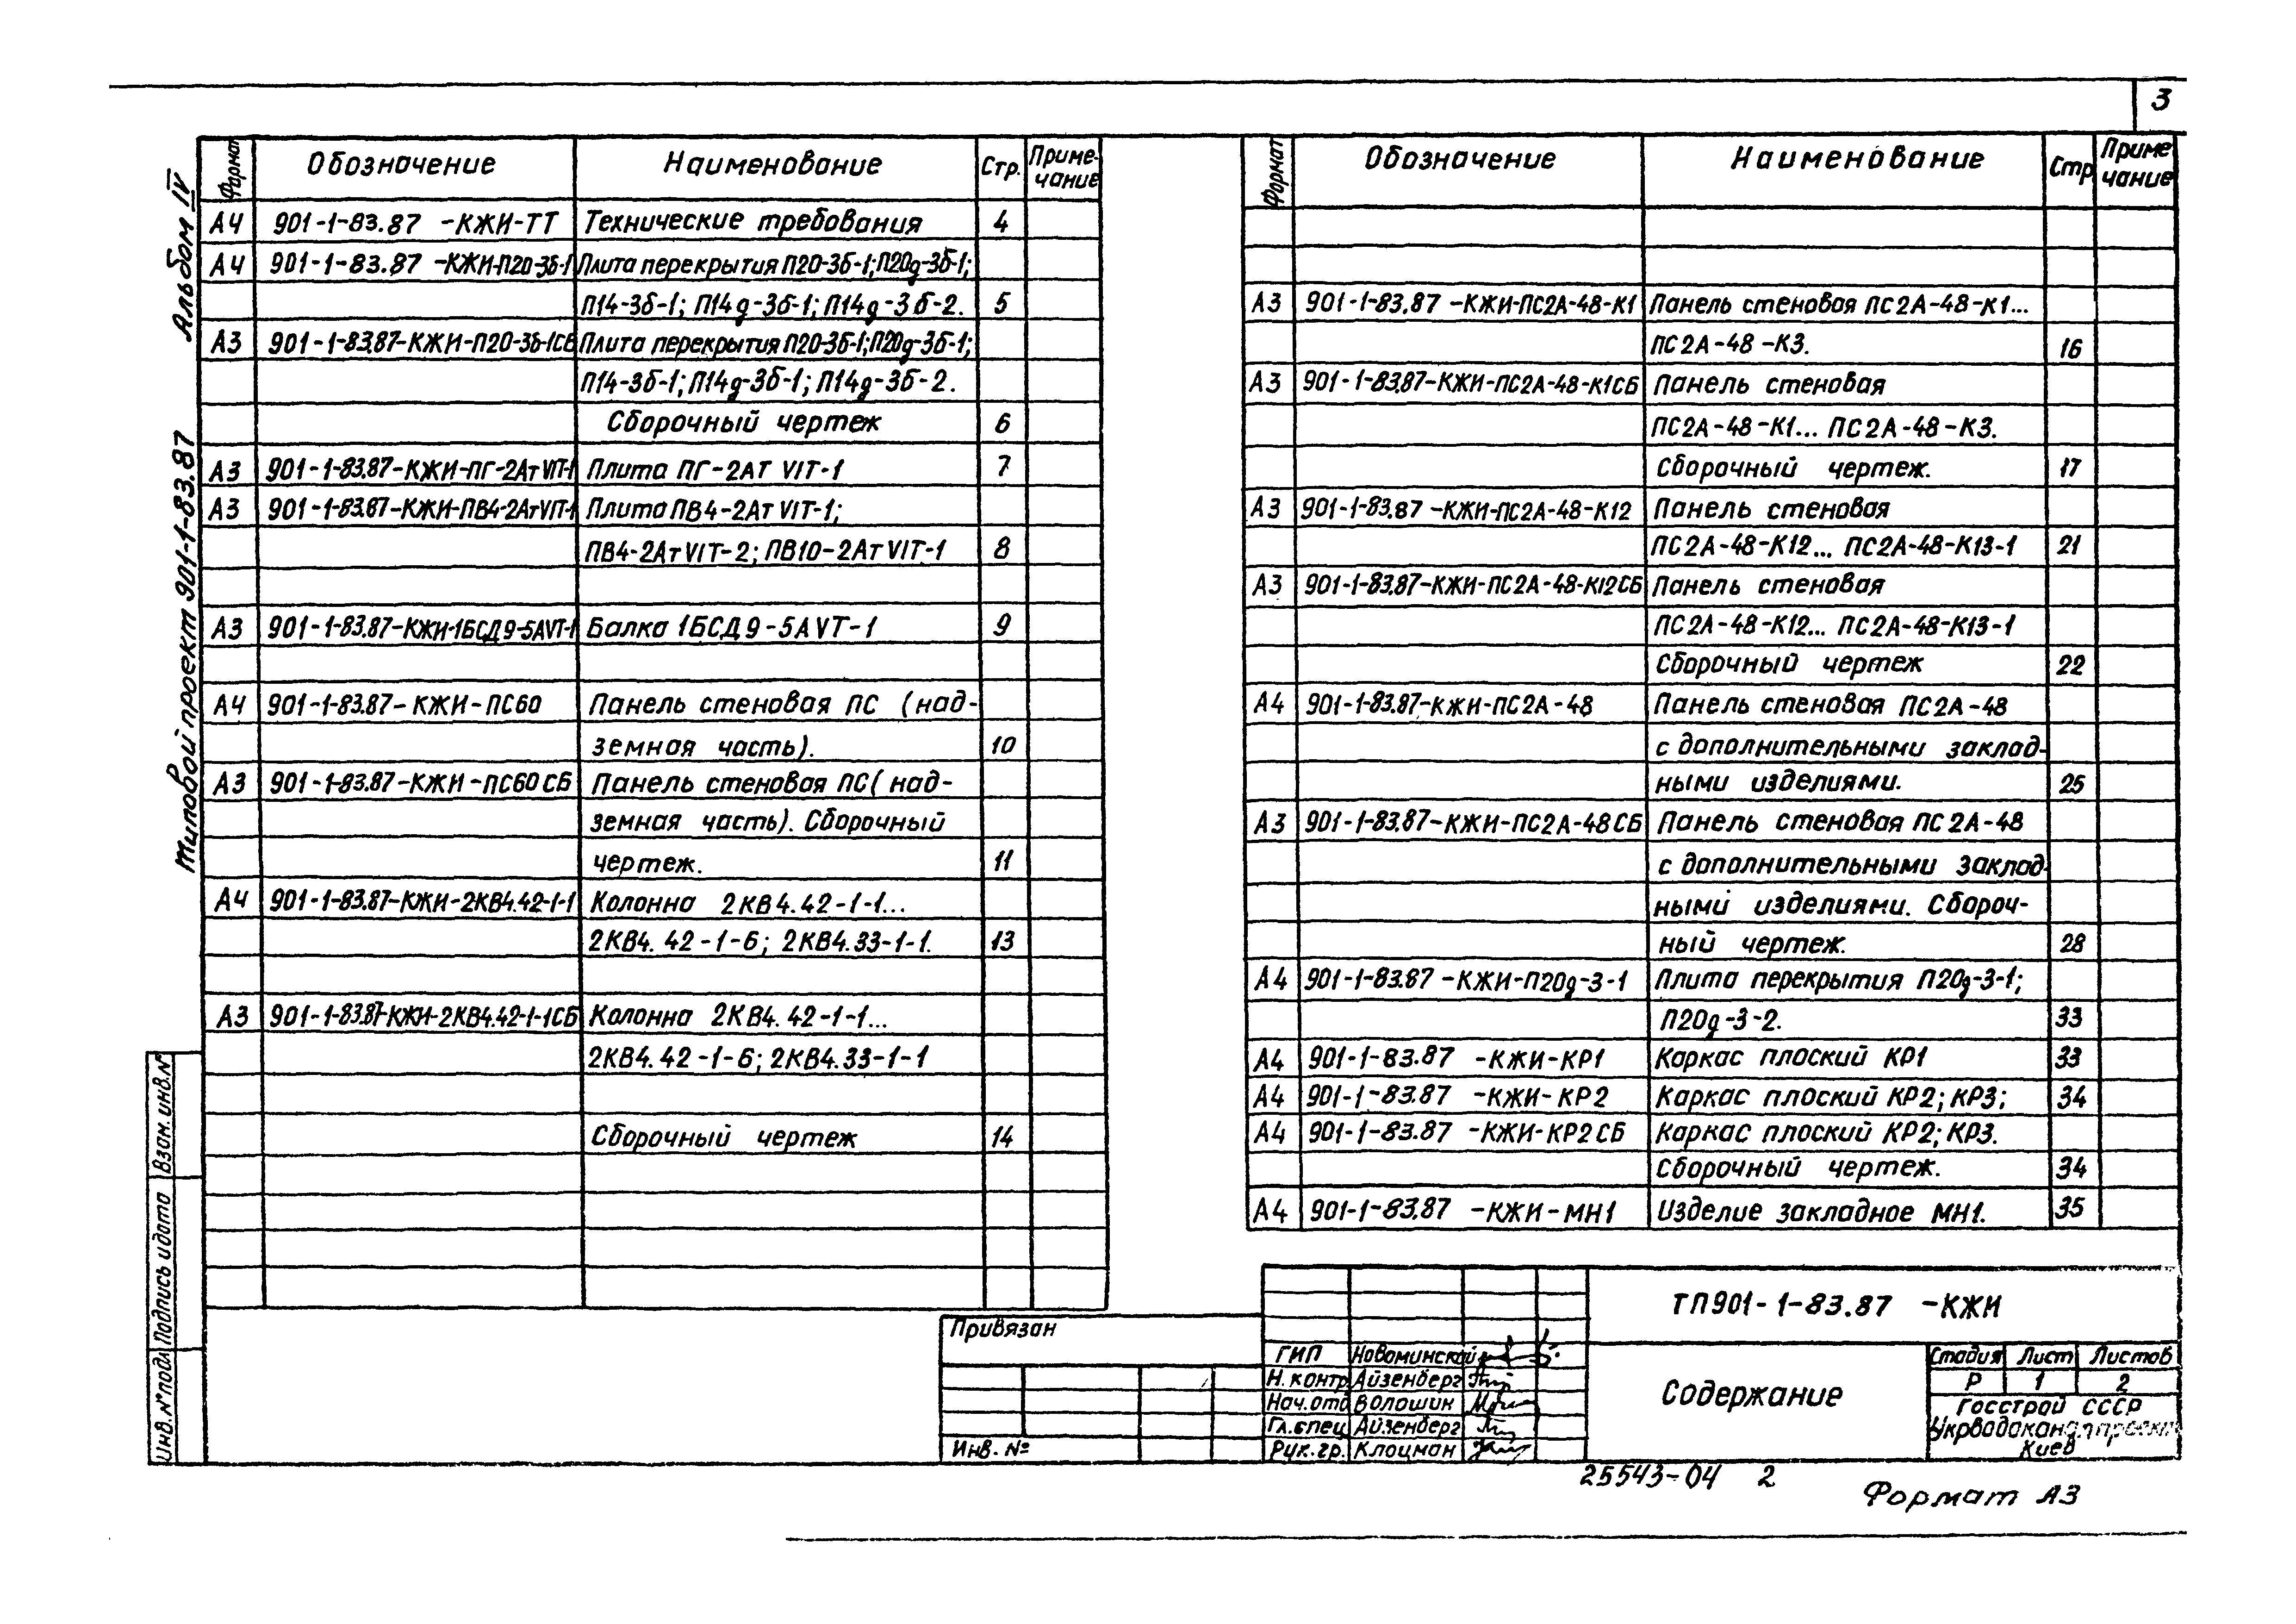 3
Альбом IV
Типовой проект 901-1-83.87
Формат Обозначение Наименование Стр. Приме-чание
А4 901-1-83.87 -КЖИ-ТТ Технические требования 4
А4 901-1-83.87 -КЖИ-П20-3б-1 Плита перекрытия П20-3б-1; П20д-3б-1;
П14-3б-1; П14д-3б-1; П14д-3б-2. 5
А3 901-1-83.87-КЖИ-П20-3б-1СБ Плита перекрытия П20-3б-1; П20д-3б-1;
П14-3б-1; П14д-3б-1; П14д-3б-2.
Сборочный чертеж 6
А3 901-1-83.87-КЖИ-ПГ-2АтVIТ-1 Плита ПГ-2АТ VIТ-1 7
А3 901-1-83.87-КЖИ-ПВ4-2АтVIТ-1 Плита ПВ4-2АТ VIТ-1;
ПВ4-2АтVIТ-2; ПВ10-2АтVIТ-1 8
А3 901-1-83.87-КЖИ-1БСД9-5АVТ-1 Балка 1БСД9-5АVТ-1 9
А4 901-1-83.87-КЖИ-ПС60 Панель стеновая ПС (над-
земная часть). 10
А3 901-1-83.87-КЖИ-ПС60СБ Панель стеновая ПС (над-
земная часть). Сборочный
чертеж. 11
А4 901-1-83.87-КЖИ-2КВ4.42-1-1 Колонна 2КВ4.42-1-1...
2КВ4.42-1-6; 2КВ4.33-1-1. 13
А3 901-1-83.87-КЖИ-2КВ4.42-1-1СБ Колонна 2КВ4.42-1-1...
2КВ4.42-1-6; 2КВ4.33-1-1
Сборочный чертеж 14
Формат Обозначение Наименование Стр Приме чание
А3 901-1-83.87 -КЖИ-ПС2А-48-К1 Панель стеновая ПС2А-48-К1...
ПС2А-48-К3. 16
А3 901-1-83.87-КЖИ-ПС2А-48-К1СБ Панель стеновая
ПС2А-48-К1... ПС2А-48-К3.
Сборочный чертеж. 17
А3 901-1-83.87 -КЖИ-ПС2А-48-К12 Панель стеновая
ПС2А-48-К12... ПС2А-48-К13-1 21
А3 901-1-83.87-КЖИ-ПС2А-48-К12СБ Панель стеновая
ПС2А-48-К12... ПС2А-48-К13-1
Сборочный чертеж 22
А4 901-1-83.87-КЖИ-ПС2А-48 Панель стеновая ПС2А-48
с дополнительными заклад-
ными изделиями. 25
А3 901-1-83.87-КЖИ-ПС2А-48СБ Панель стеновая ПС2А-48
с дополнительными заклад-
ными изделиями. Сбороч-
ный чертеж. 28
А4 901-1-83.87 -КЖИ-П20д-3-1 Плита перекрытия П20д-3-1;
П20д-3-2. 33
А4 901-1-83.87 -КЖИ-КР1 Каркас плоский КР1 33
А4 901-1-83.87 -КЖИ-КР2 Каркас плоский КР2; КР3; 34
А4 901-1-83.87 -КЖИ-КР2СБ Каркас плоский КР2; КР3.
Сборочный чертеж. 34
А4 901-1-83.87 -КЖИ-МН1 Изделие закладное МН1. 35
Взам. инв. №
Подпись и дата
Инв. № подл
Привязан
Инв. №
ГИП Новоминский
Н. контр. Айзенберг
Нач. отд Волошин
Гл. спец Айзенберг
Рук. гр. Клоцман
ТП901-1-83.87 -КЖИ
Содержание
Стадия Лист Листов
Р 1 2
Госстрой СССР
Укрводоканалпроект
Киев
25543-04 2
Формат А3